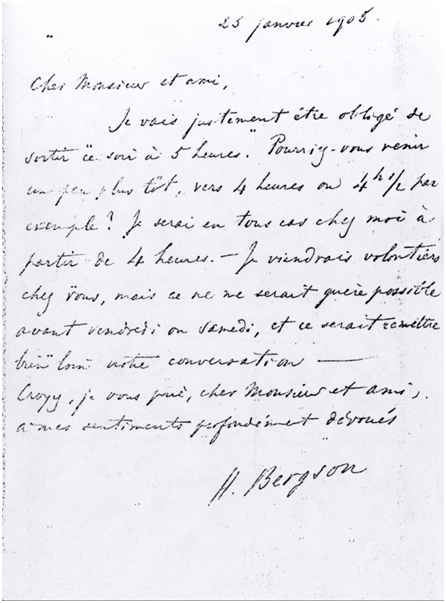 25 janvier 1905.
Cher Monsieur et ami,
Je vais justement être obligé de
sortir ce soir à 5 heures. Pourriez-vous venir
un peu plus tôt, vers 4 heures ou 4 h 1/2 par
exemple ? Je serai en tous cas chez moi à
partir de 4 heures. — Je viendrais volontiers
chez vous, mais ce ne me serait guère possible
avant vendredi ou samedi, et ce serait remettre
bien loin notre conversation —
Croyez, je vous prie, cher Monsieur et ami,
à mes sentiments profondément dévoués
H. Bergson